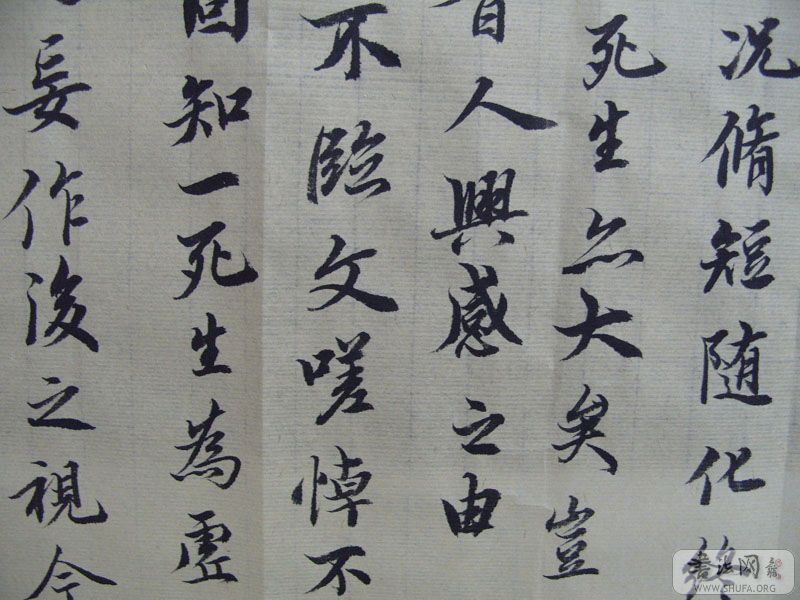 况脩短随化終
死生亦大矣豈
昔人興感之由
不臨文嗟悼不
固知一死生為虚
妄作後之視今
书法网
WWW.SHUFA.ORG